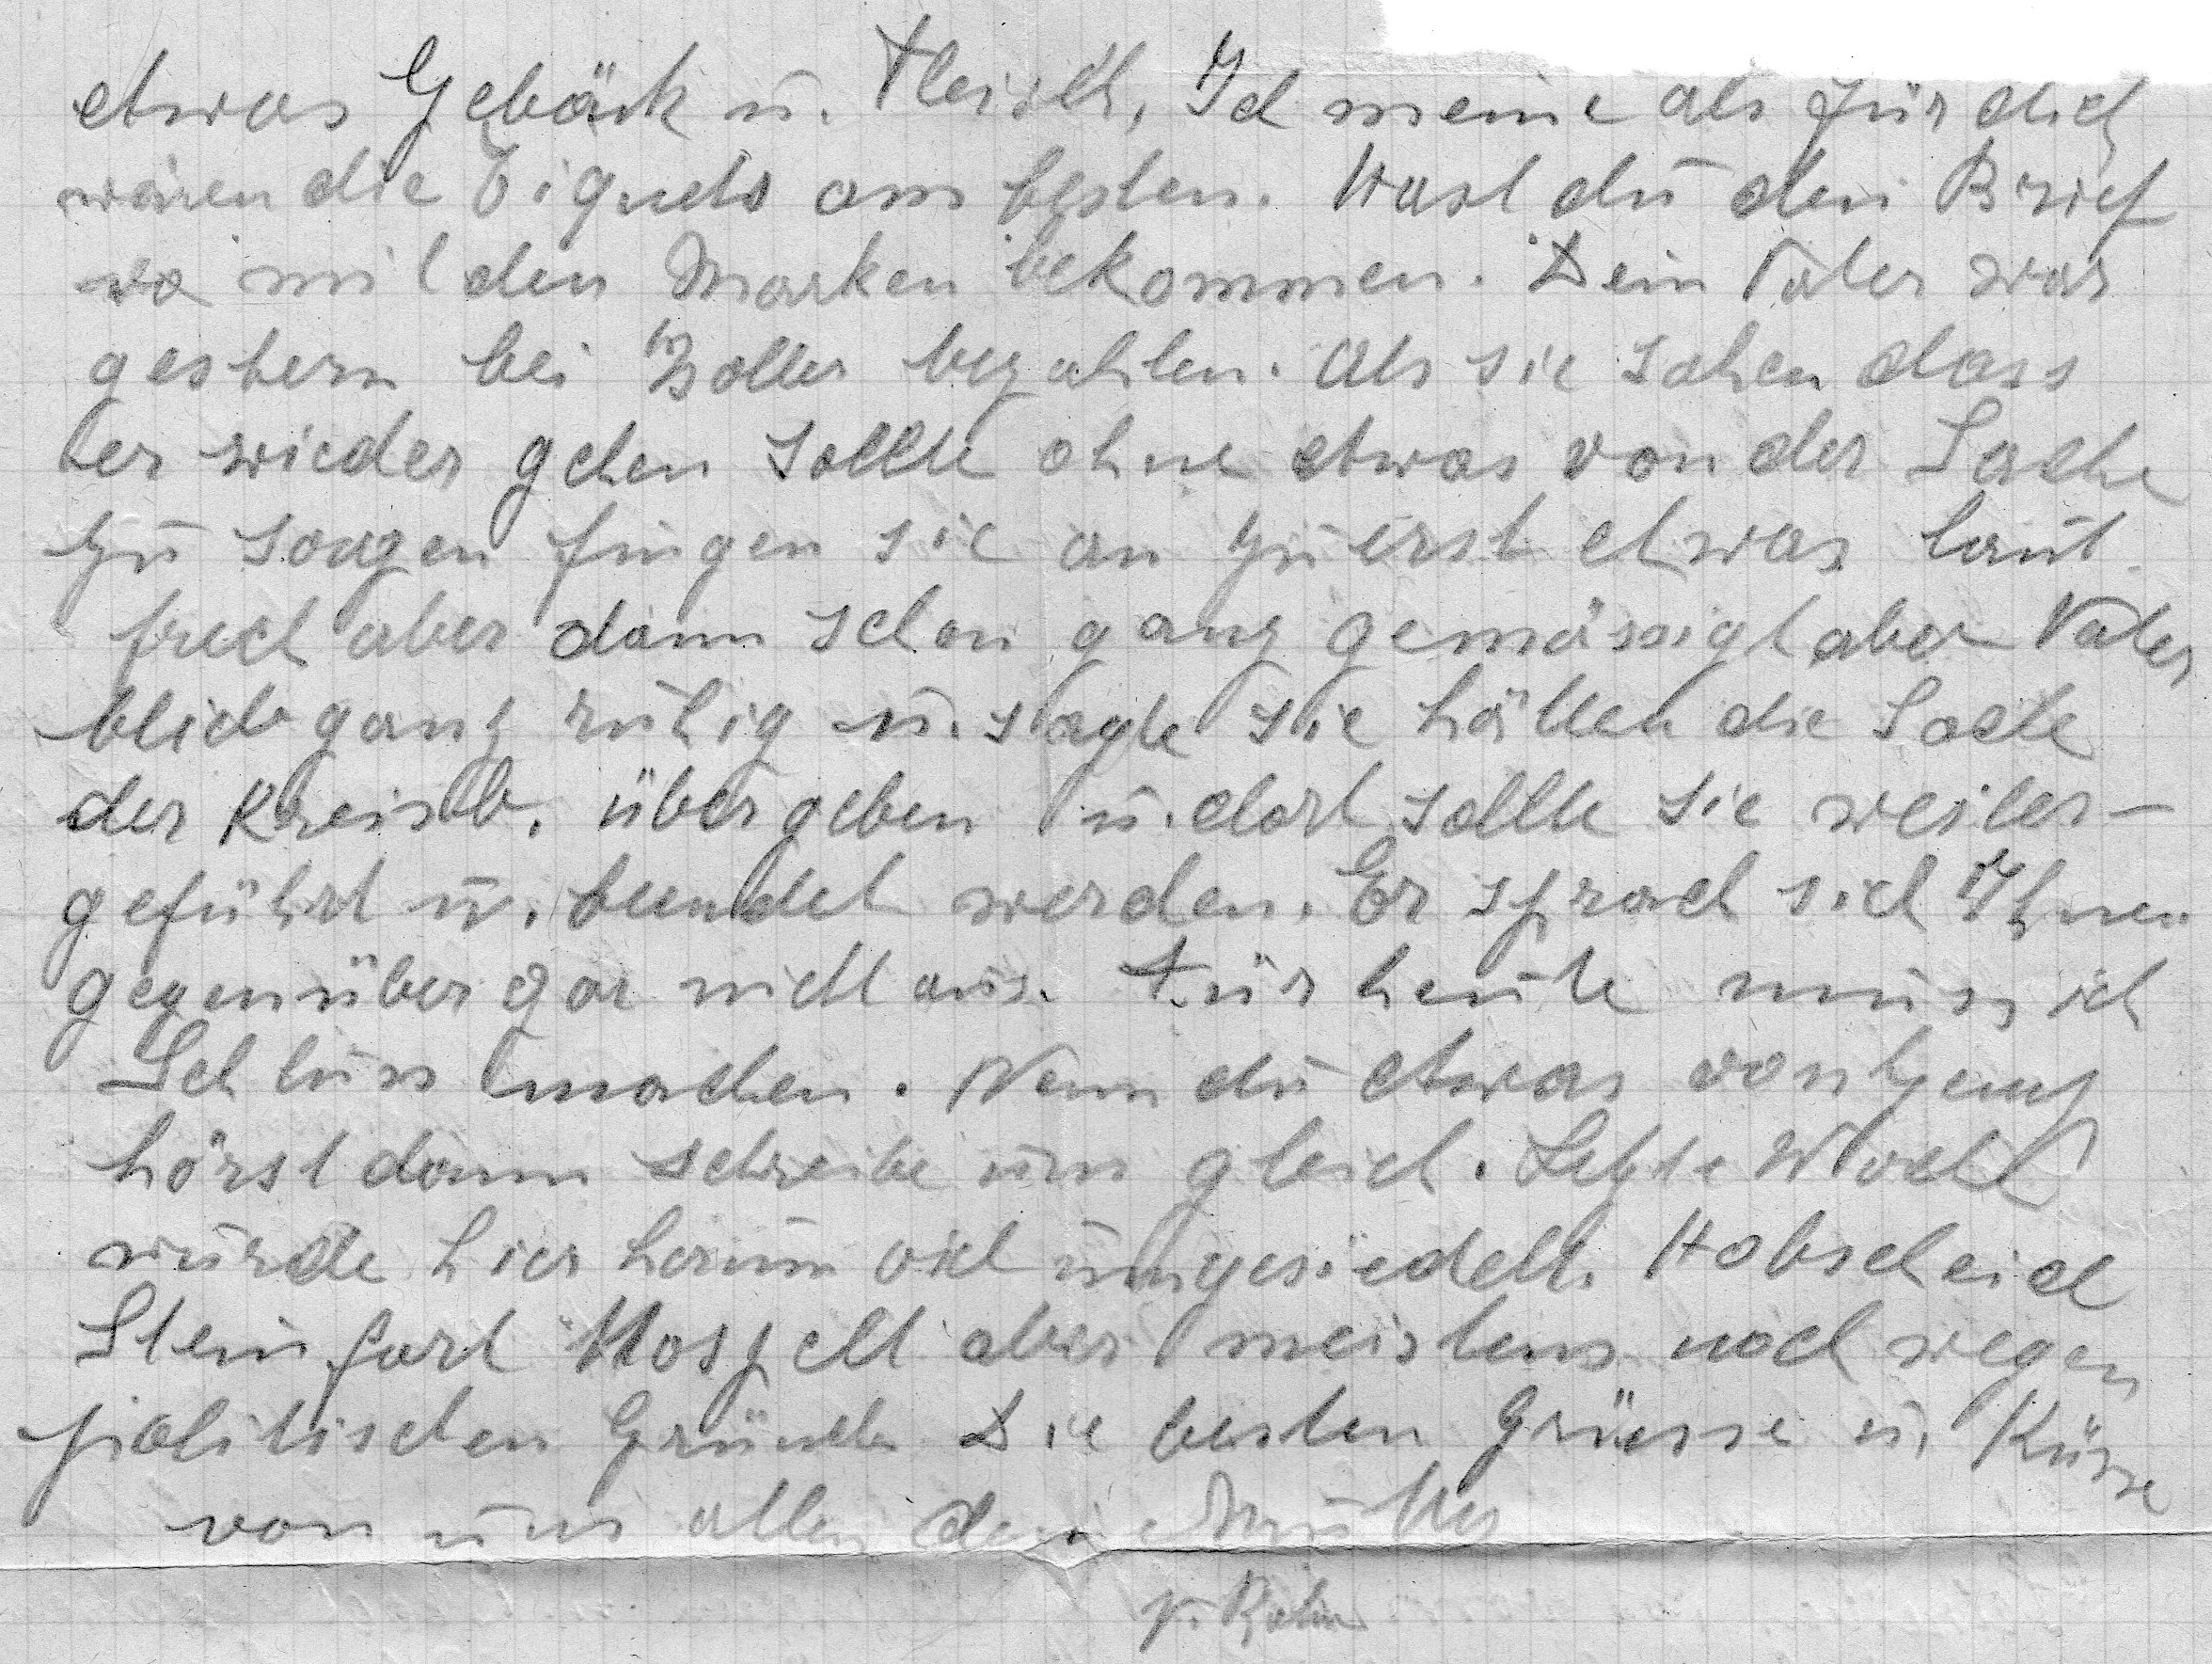 etwas Gebäck u. Fleisch, Ich meine als für dich
wären die am besten. Hast du den Brief
wo mit den Marken bekommen. Dein Vater war
gestern bei bezahlen. Als sie sahen dass
er wieder gehen sollte ohne etwas von der Sache
zu sagen fingen sie an zuerst etwas laut
frech aber dann schon ganz gemässigt aber Vater
blieb ganz ruhig u. sagte sie hätten die Sache
der Kreisb. übergeben u. dort sollte sie weiter-
geführt u. beendet werden. Er sprach sich Ihnen
gegenüber gar nicht aus. Für heute muss ich
Schluss machen. Wenn du etwas von
hörst dann schreibe uns gleich. Letzte Woche
wurde hier herum viel umgesiedelt. Hobscheid
Steinfort Hospelt aber meistens noch wegen
politischen Gründen Die besten Grüsse u. Küsse
von uns allen dein Mutter